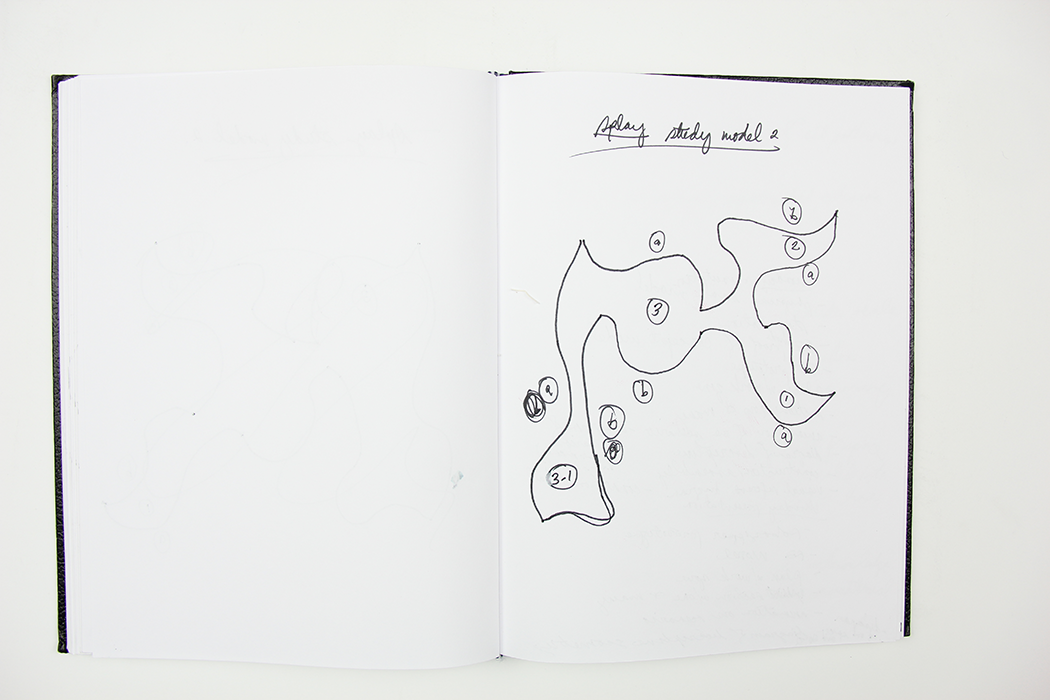 splay study model 2
b
2
a
a
3
b
1
a
b
a
b
3-1